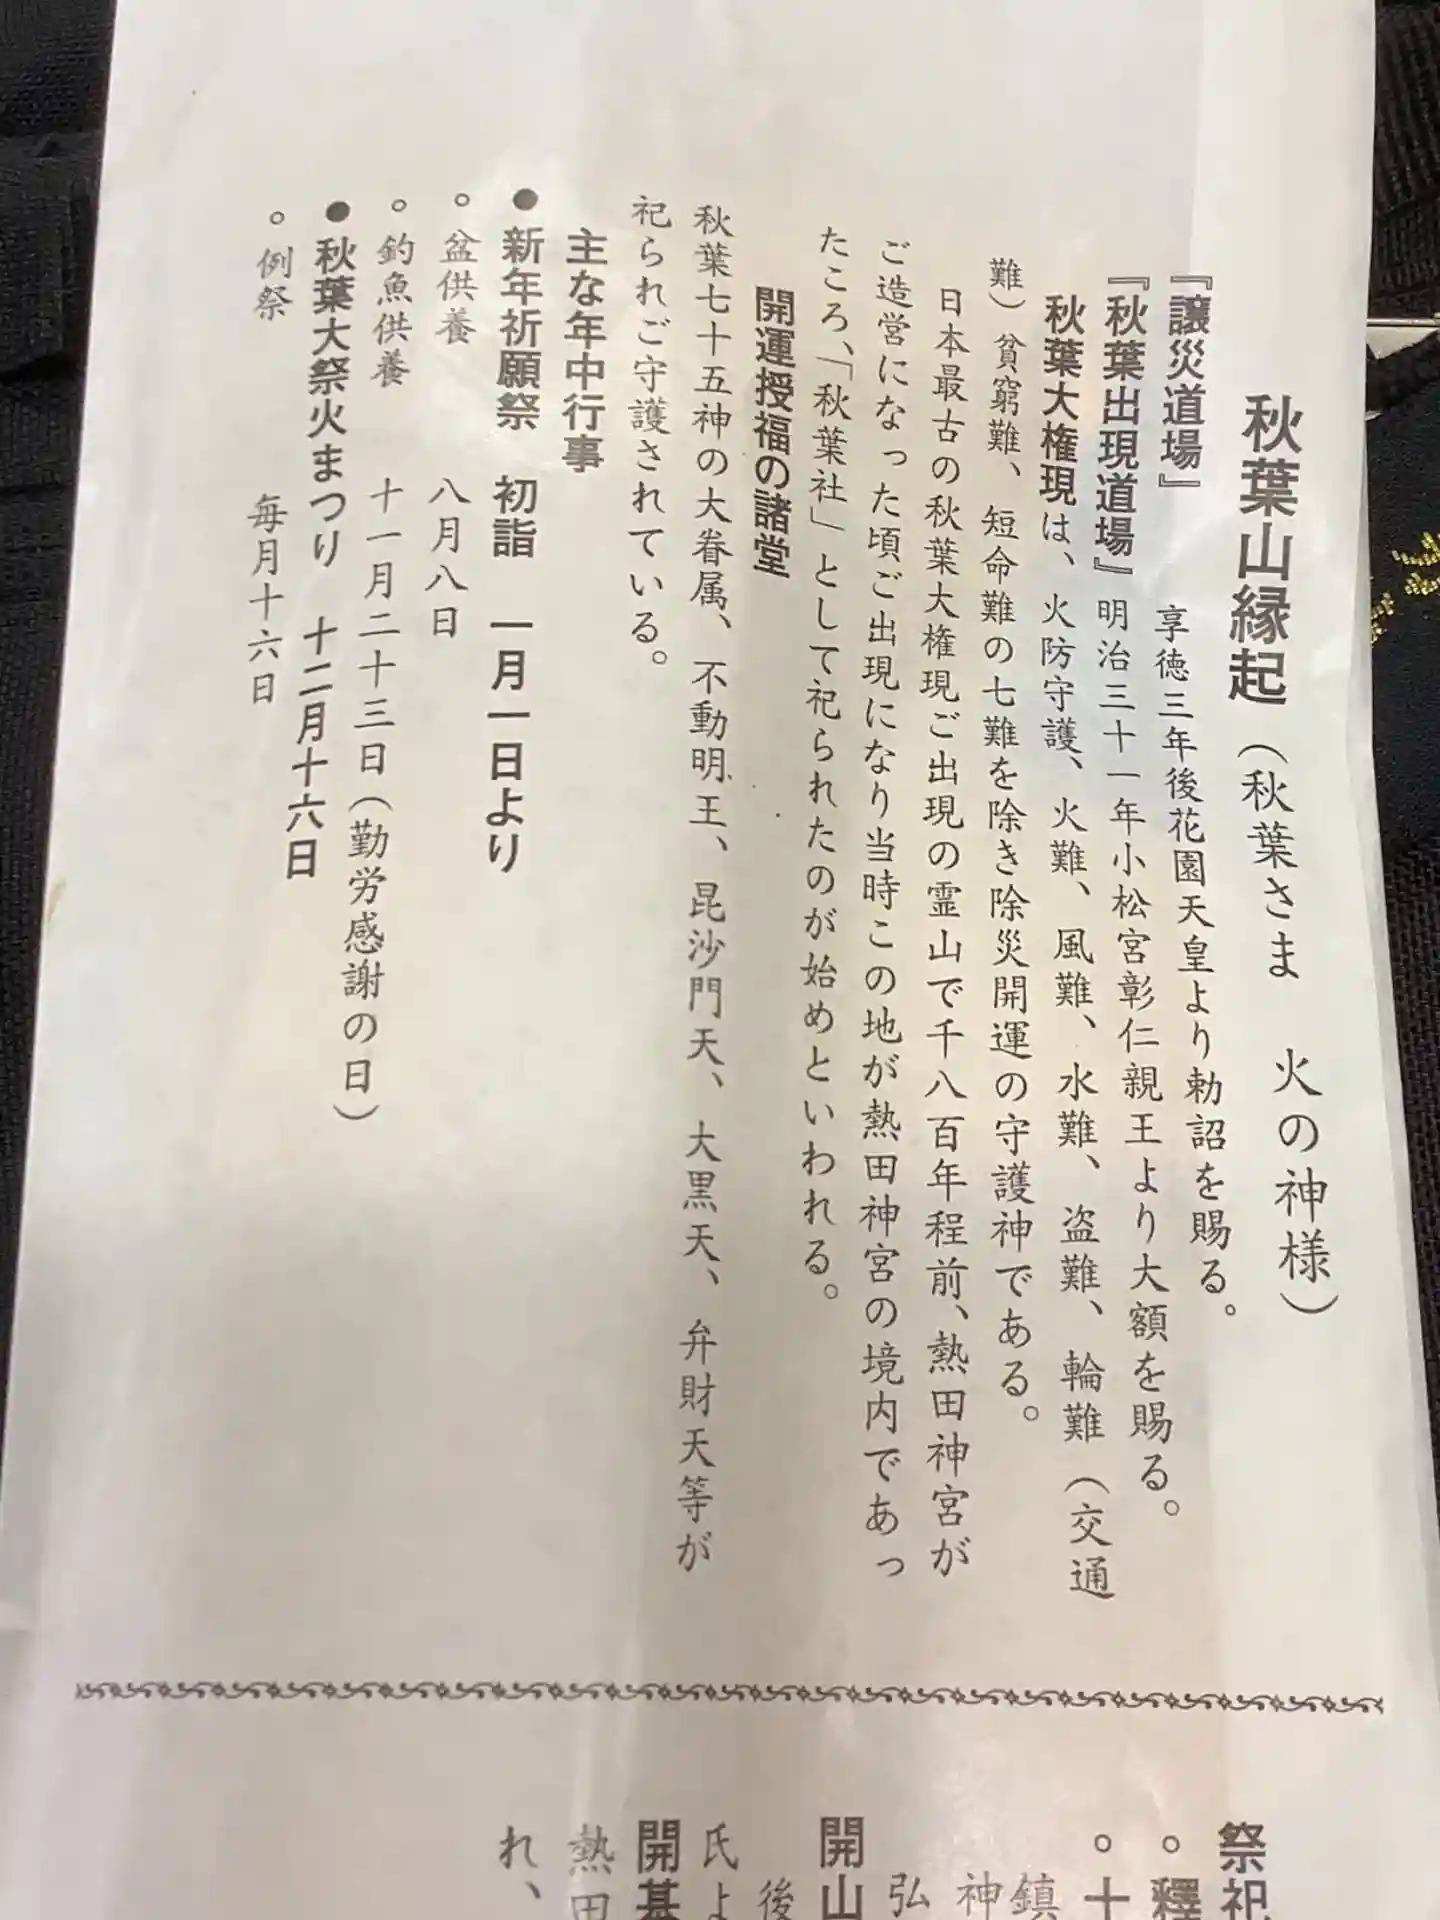 秋葉山縁起（秋葉さま　火の神様）
『譲災道場』　享徳三年後花園天皇より勅詔を賜る。
『秋葉出現道場』明治三十一年小松宮彰仁親王より大額を賜る。
秋葉大権現は、火防守護、火難、風難、水難、盗難、輪難（交通
難）貧窮難、短命難の七難を除き除災開運の守護神である。
日本最古の秋葉大権現ご出現の霊山で千八百年程前、熱田神宮が
ご造営になった頃ご出現になり当時この地が熱田神宮の境内であっ
たころ、「秋葉社」として祀られたのが始めといわれる。
開運授福の諸堂
秋葉七十五神の大眷属、不動明王、昆沙門天、大黒天、弁財天等が
祀られご守護されている。
主な年中行事
●新年祈願祭　初詣　一月一日より
○盆供養　八月八日
○釣魚供養　十一月二十三日（勤労感謝の日）
●秋葉大祭火まつり　十二月十六日
○例祭　毎月十六日
祭祀
○釋
○十
鎮
神
弘
開山
後
氏よ
開基
熱田
れ、